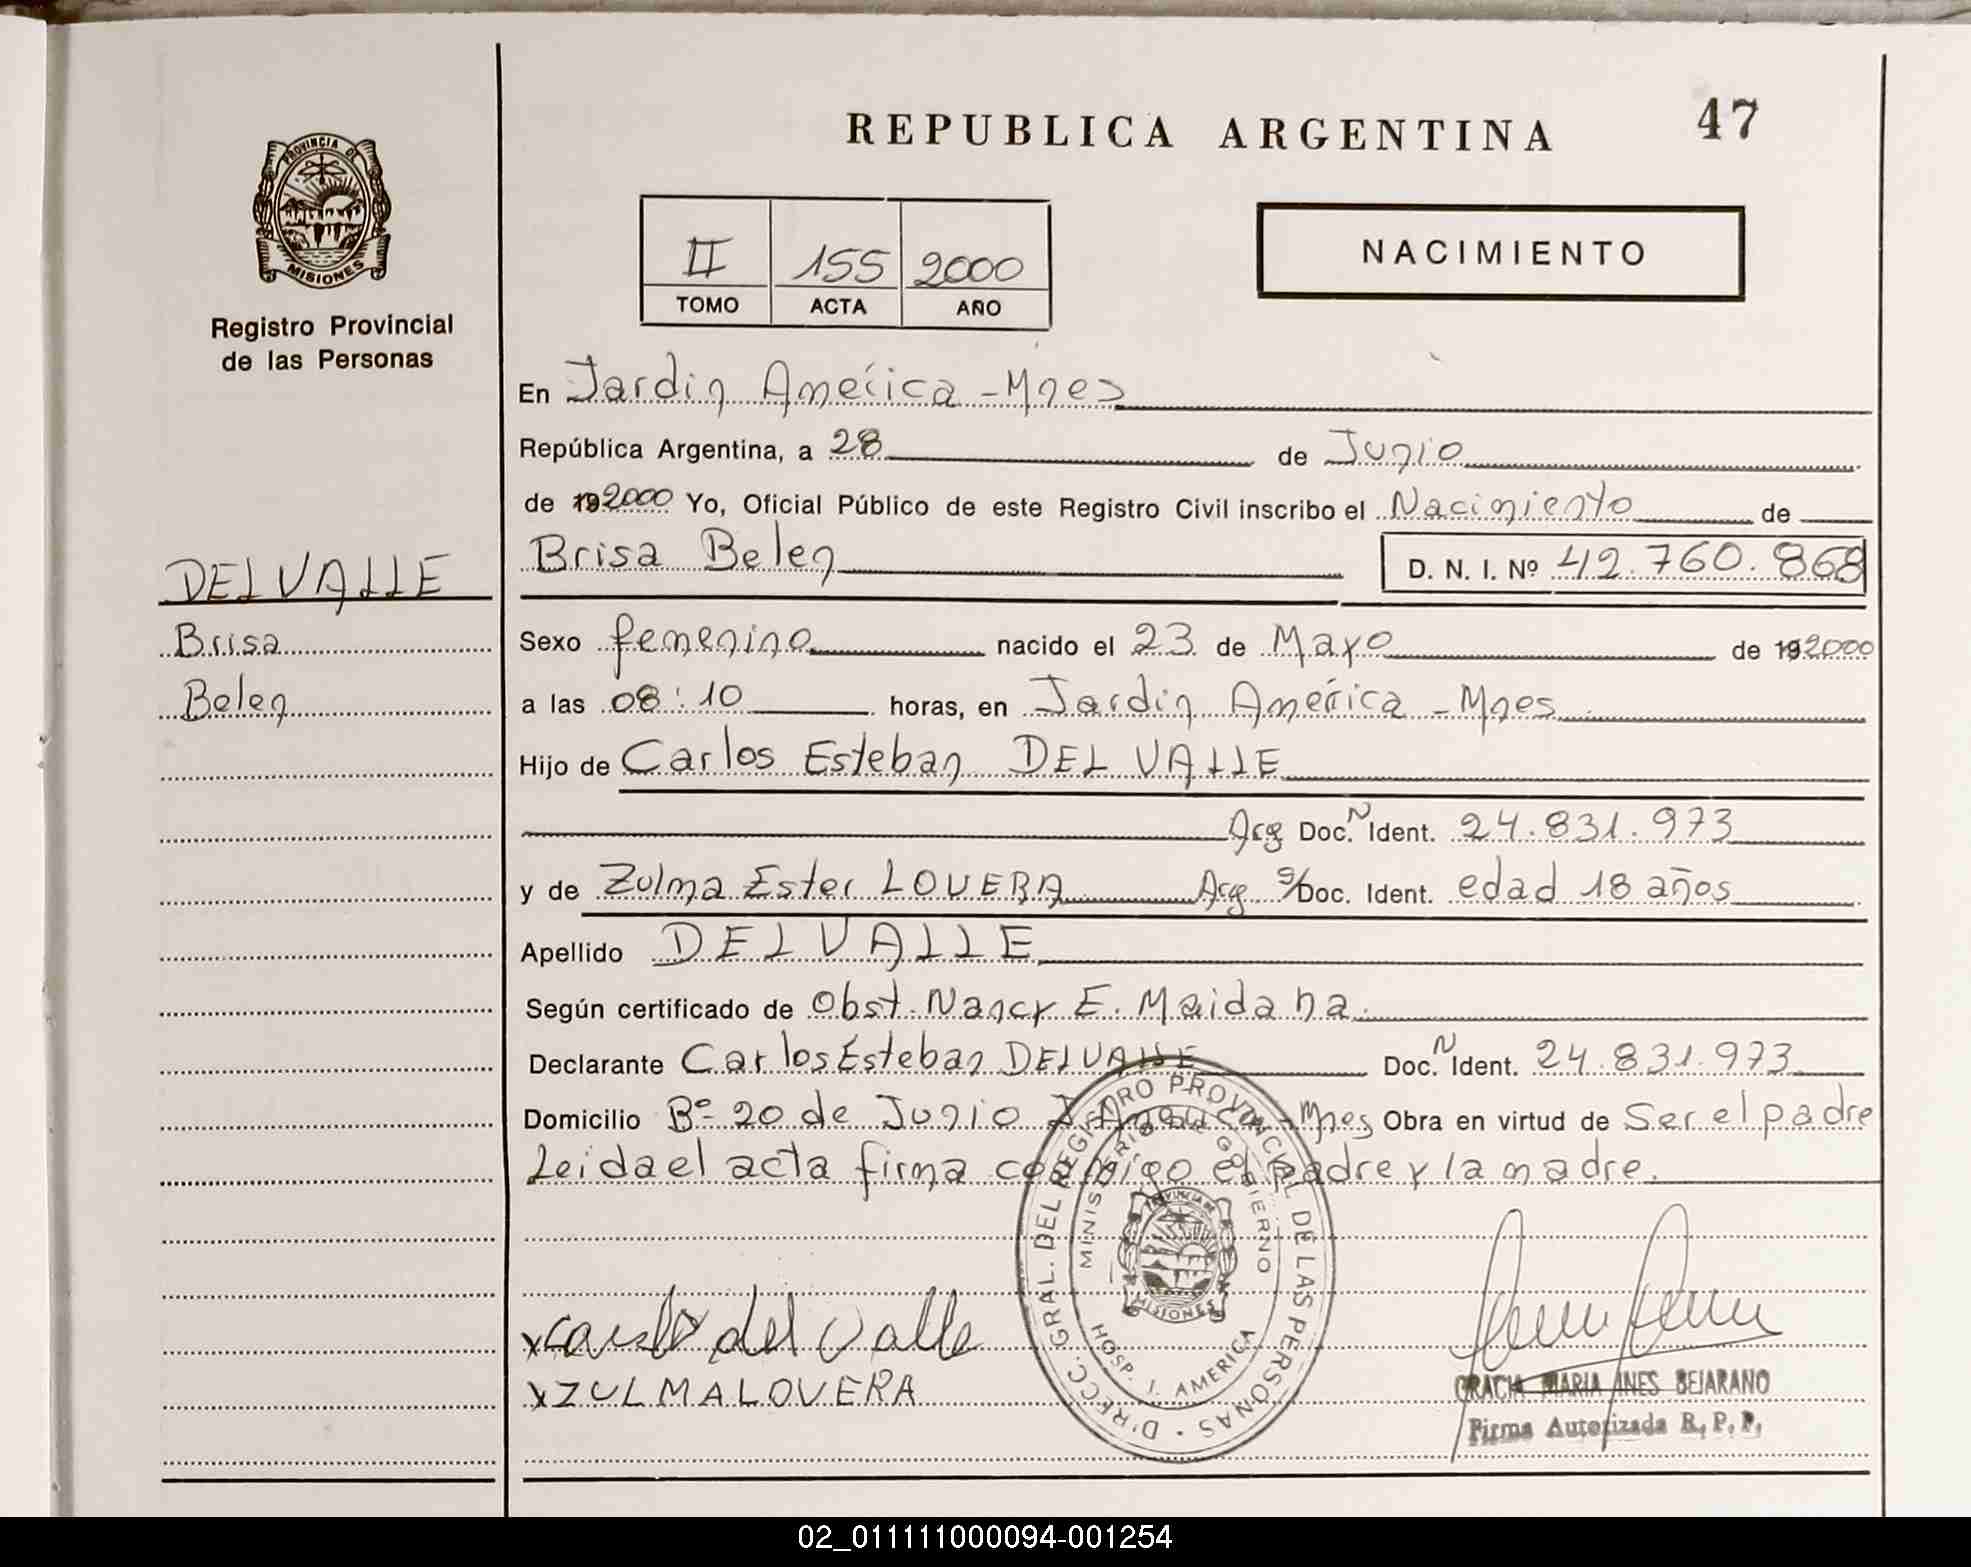 REPUBLICA ARGENTINA
47
PROVINCIA DE
MISIONES
Registro Provincial
de las Personas
II 155 2000
TOMO ACTA AÑO
NACIMIENTO
En Jardin América - Mnes
República Argentina, a 28 de Junio
de 192000 Yo, Oficial Público de este Registro Civil inscribo el Nacimiento de
Brisa Belen D. N. I. Nº 42.760.868
DELVALLE
Brisa
Belen
Sexo femenino nacido el 23 de Mayo de 192000
a las 08:10 horas, en Jardin América - Mnes
Hijo de Carlos Esteban DELVALLE
Arg Doc. N Ident. 24.831.973
y de Zulma Ester LOVERA Arg s/Doc. Ident. edad 18 años
Apellido DELVALLE
Según certificado de Obst. Nancy E. Maidana.
Declarante Carlos Esteban DELVALLE Doc. N Ident. 24.831.973
Domicilio Bº 20 de Junio J. América - Mnes Obra en virtud de Ser el padre
Leida el acta firma conmigo el padre y la madre.
DIRECC. GRAL. DEL REGISTRO PROVINCIAL DE LAS PERSONAS
MINISTERIO DE GOBIERNO
PROVINCIA DE
MISIONES
HOSP. J. AMERICA
x Carlos del Valle
x ZULMA LOVERA
GRACIA MARIA INES BEJARANO
Firma Autorizada R. P. P.
02_011111000094-001254